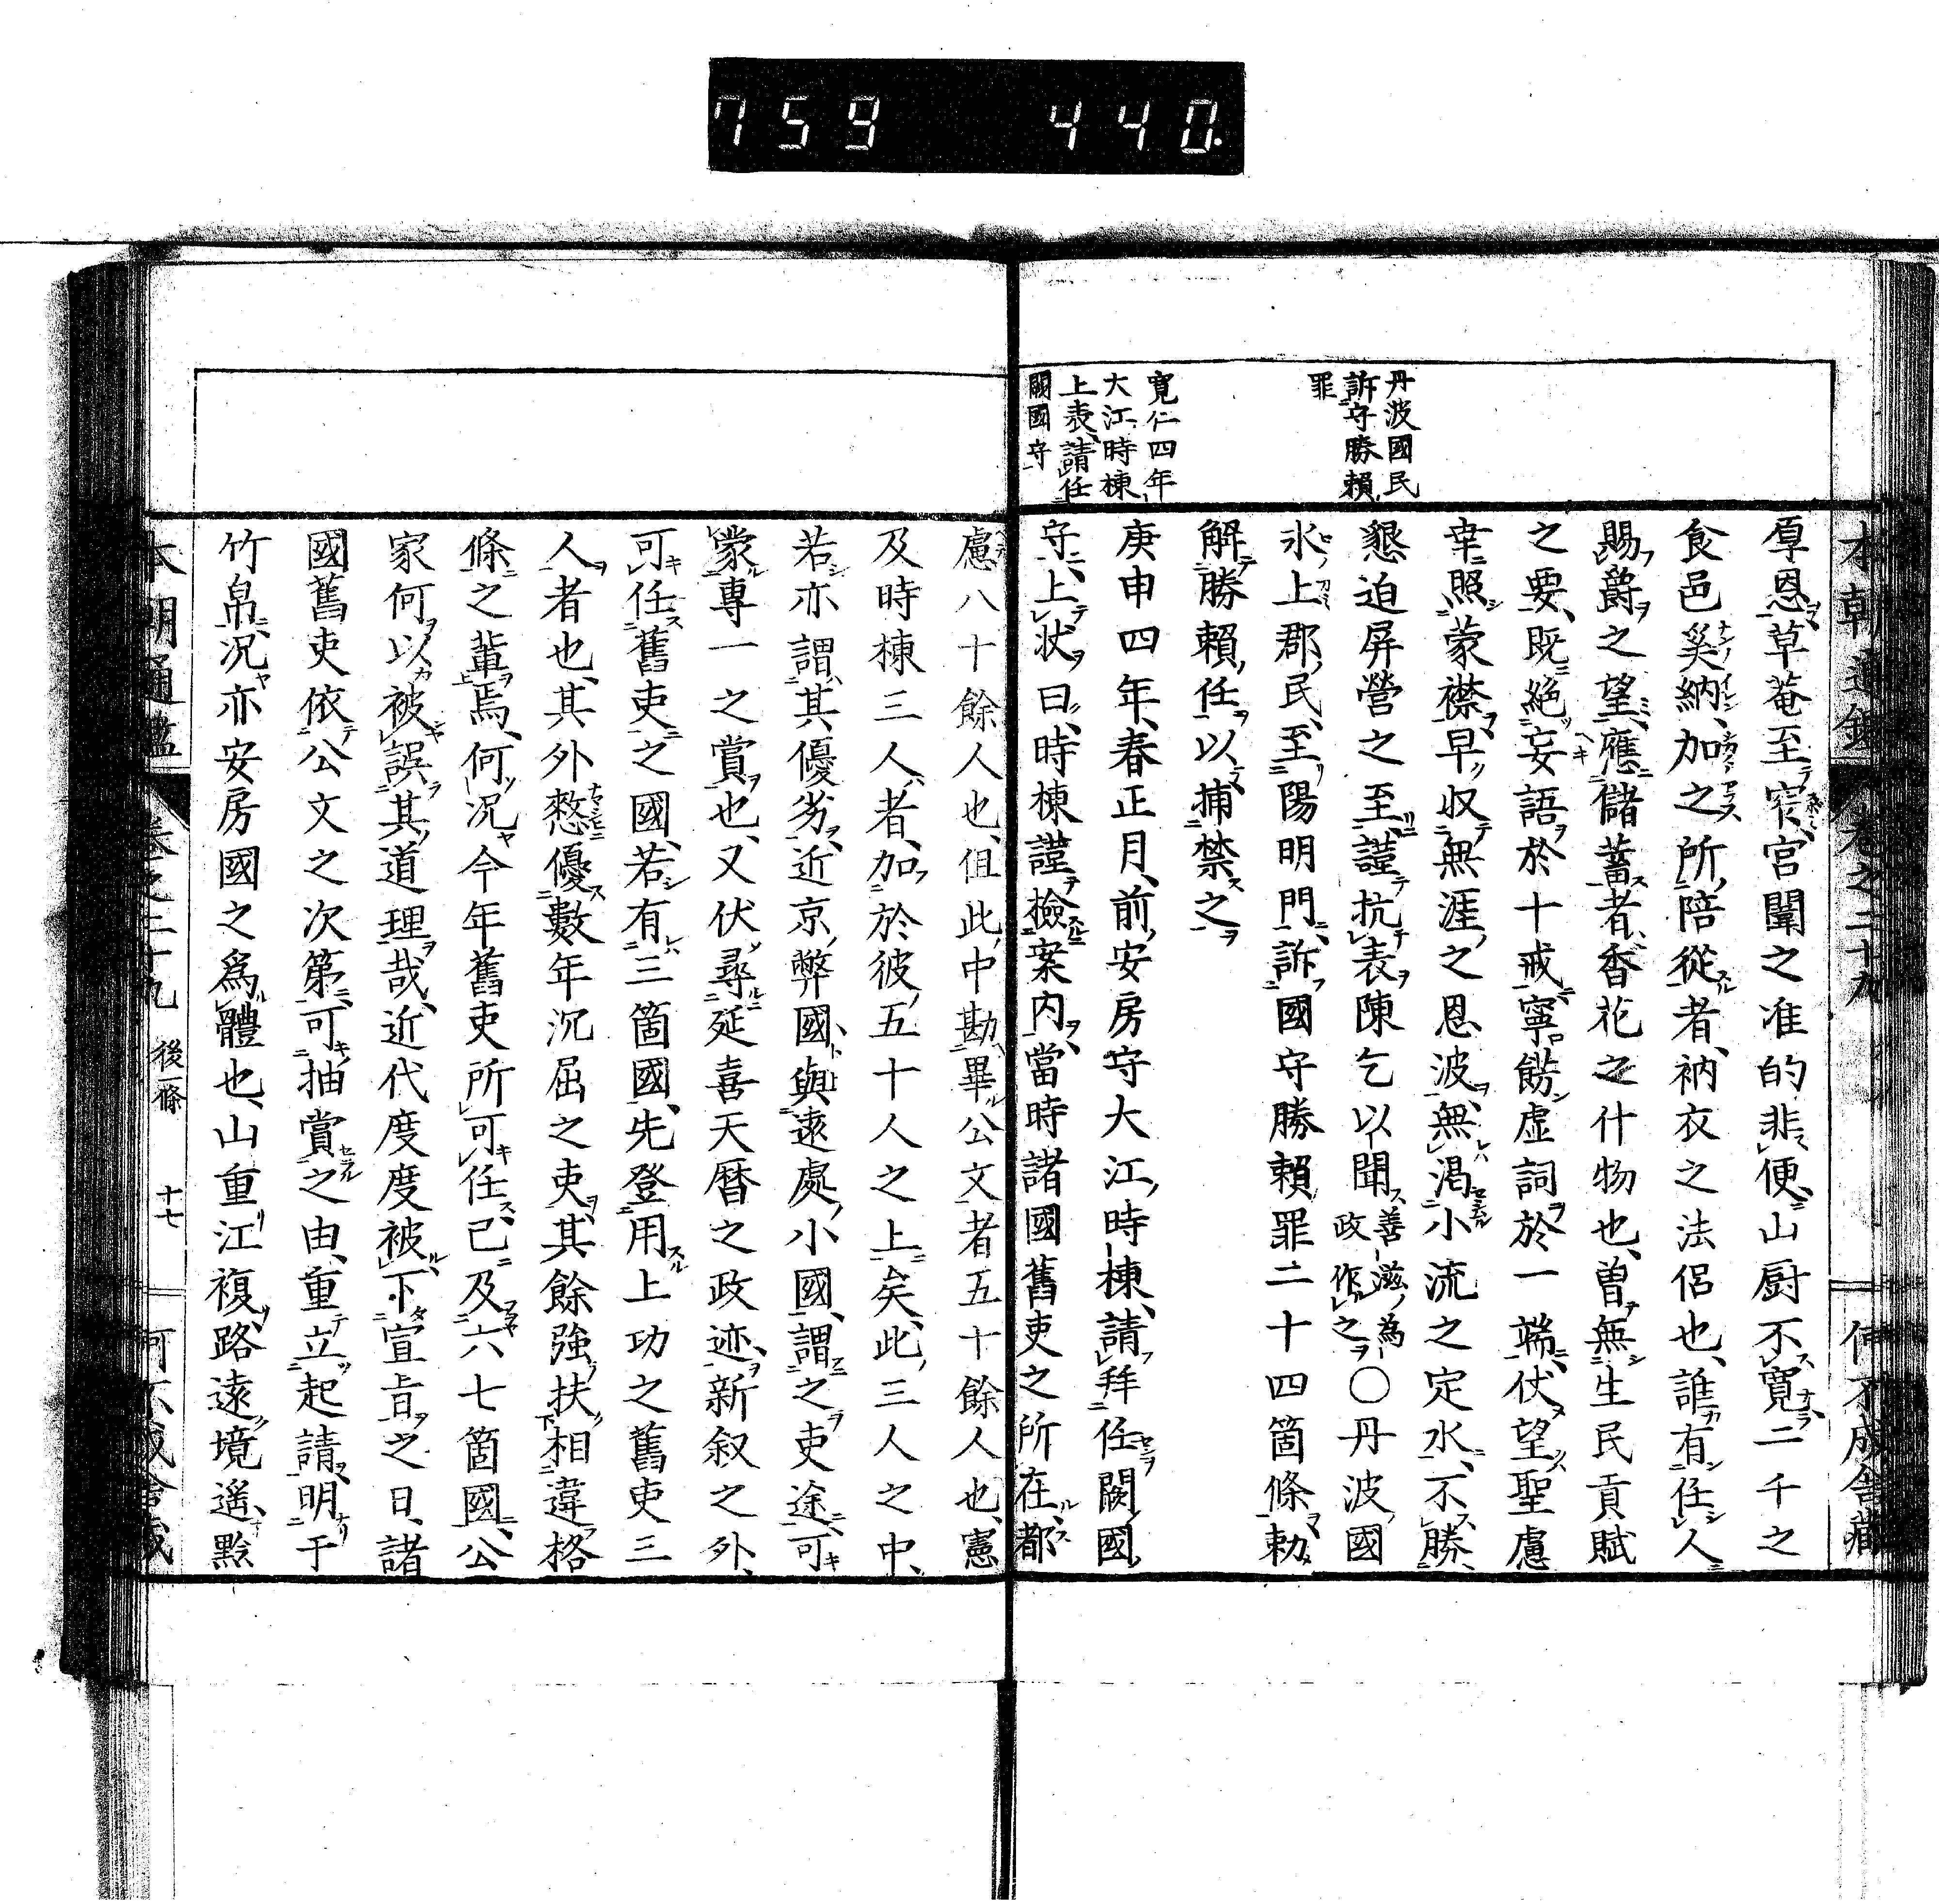 759 440.
本朝通鑑 卷之二十九
何不成舎藏
丹波國民
訴守勝賴
罪
寬仁四年
大江時棟
上表請任
闕國守
厚恩草菴至窄宮闈之准的非便山厨不寬二千之
食邑奚納加之所陪從者衲衣之法侶也誰有任人
賜爵之望應儲蓄者香花之什物也曽無生民貢賦
之要既絕妄語於十戒寧餝虚詞於一端伏望聖慮
幸照蒙襟早収無涯之恩波無渇小流之定水不勝
懇迫屏營之至謹抗表陳乞以聞善滋為政作之〇丹波國
氷上郡民至陽明門訴國守勝賴罪二十四箇條勅
解勝賴任以捕禁之
庚申四年春正月前安房守大江時棟請拜任闕國
守上状曰時棟謹檢案内當時諸國舊吏之所在都
慮八十餘人也但此中勘畢公文者五十餘人也憲
及時棟三人者加於彼五十人之上矣此三人之中
若亦謂其優劣近京弊國與遠處小國謂之吏途可
蒙專一之賞也又伏尋延喜天暦之政迹新叙之外
可任舊吏之國若有三箇國先登用上功之舊吏三
人者也其外憖優數年沉屈之吏其餘強扶相違格
條之輩焉何况今年舊吏所可任已及六七箇國公
家何以被誤其道理哉近代度度被下宣旨之日諸
國舊吏依公文之次第可抽賞之由重立起請明于
竹帛况亦安房國之為體也山重江複路遠境遙黔
本朝通鑑 卷之二十九 後一條 十七
何不成舎藏